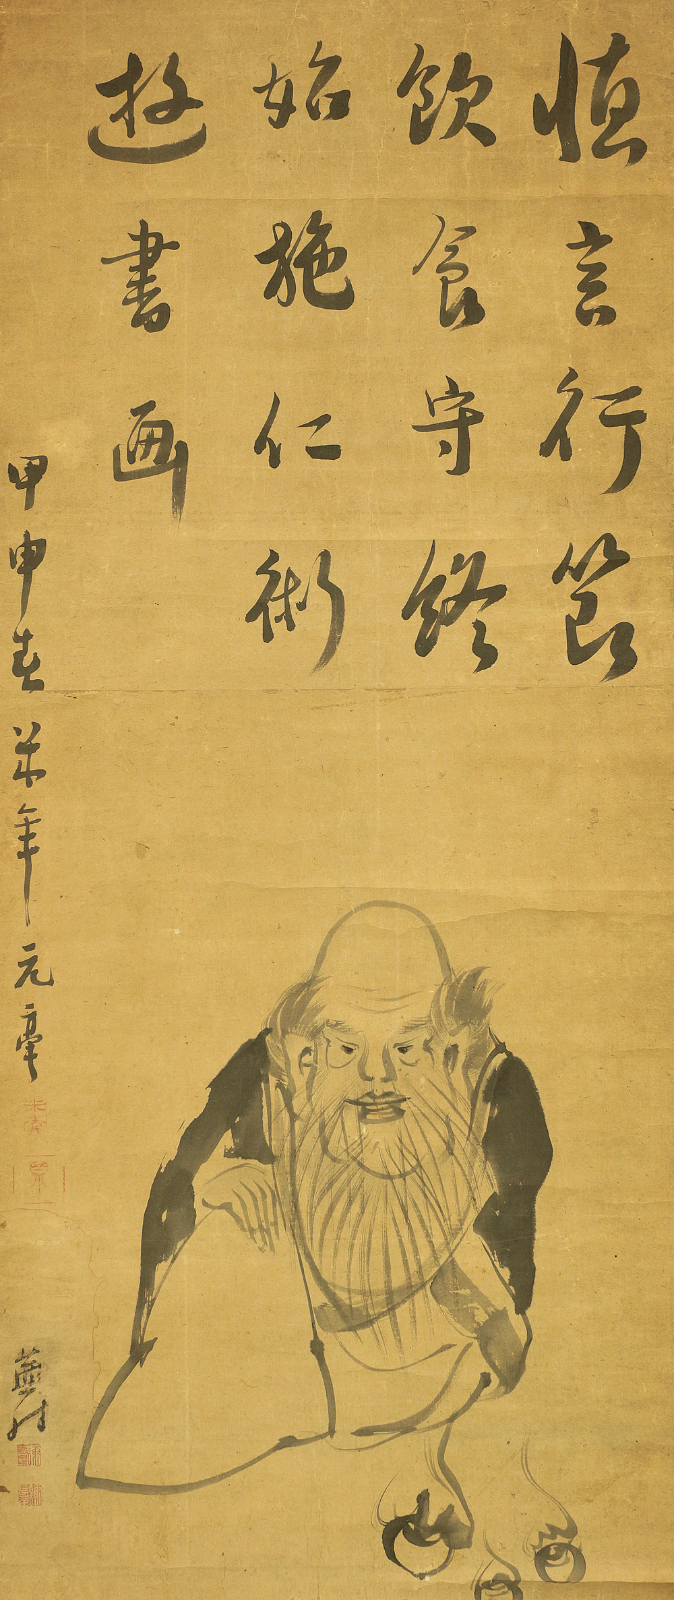 慎言行節
飲食守終
始施仁術
遊書画
甲申春
米年元亮
蕪村